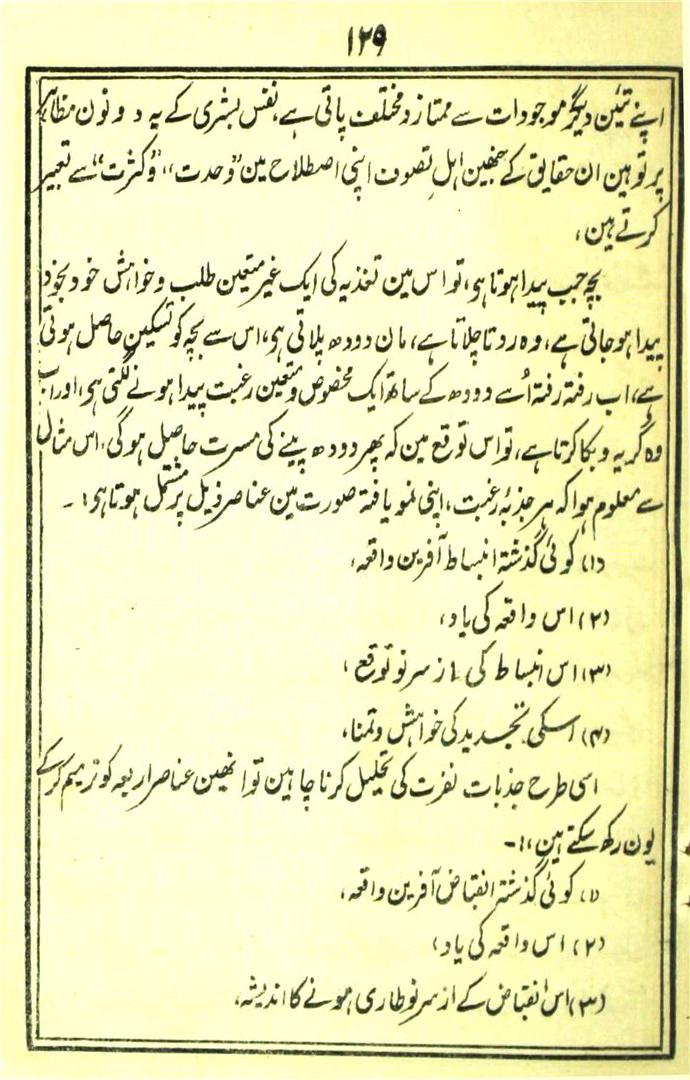 ۱۲۹
اپنے تئین دیگر موجودات سے ممتاز و مختلف پاتی ہے، نفس بشری کے یہ دونون مظاہر
پر تو ہین ان حقایق کے جنھین اہل تصوف اپنی اصطلاح مین "وحدت"، "وکثرت" سے تعبیر
کرتے ہین،
بچہ جب پیدا ہوتا ہی، تو اس مین تغذیہ کی ایک غیر متعین طلب و خواہش خود بخود
پیدا ہو جاتی ہے، وہ روتا چلاتا ہے، مان دودھ پلاتی ہی، اس سے بچہ کو تسکین حاصل ہوتی
ہے، اب رفتہ رفتہ اُسے دودھ کے ساتھ ایک مخصوص و متعین رغبت پیدا ہونے لگتی ہی، اور اب
وہ گریہ و بکا کرتا ہے، تو اس توقع مین کہ پھر دودھ پینے کی مسرت حاصل ہوگی، اس مثال
سے معلوم ہوا کہ ہر جذبۂ رغبت، اپنی نمو یافتہ صورت مین عناصر ذیل پر مشتمل ہوتا ہی:۔
(۱) کوئی گذشتہ انبساط آفرین واقعہ،
(۲) اس واقعہ کی یاد،
(۳) اس انبساط کی از سر نو توقع،
(۴) اسکی تجدید کی خواہش و تمنا،
اسی طرح جذبات نفرت کی تحلیل کرنا چاہین تو انھین عناصر اربعہ کو ترمیم کرکے
یون رکھ سکتے ہین،:۔
(۱) کوئی گذشتہ انقباض آفرین واقعہ،
(۲) اس واقعہ کی یاد،
(۳) اس انقباض کے از سر نو طاری ہونے کا اندیشہ،